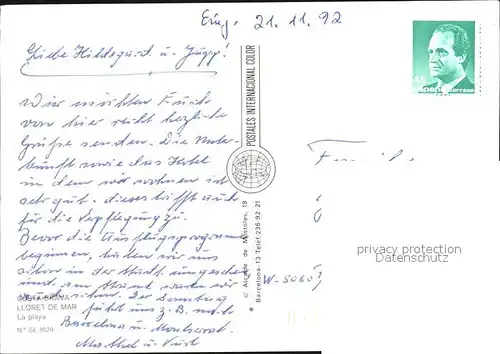 Eing. 21.11.92
Liebe Hildegard u. Jupp!
Wir möchten Euch
von hier recht herzliche
Grüße senden. Die Unter-
kunft sowie das Hotel
in dem wir wohnen ist
sehr gut. dieses trifft auch
für die Verpflegung zu.
Bevor die Ausflugsprogramme
beginnen, haben wir uns
schon in der Stadt umgesehen
und am Strand waren wir
auch schon. Der Samstag
führt uns z.B. nach
Barcelona u. Montserrat.
COSTA BRAVA
LLORET DE MAR
La playa
N.º GI. 1629
POSTALES INTERNACIONAL COLOR
c/ Alcalde de Móstoles, 19
Barcelona-13 Telef. 236-92-21
España correos
W-5060
privacy protection
Datenschutz